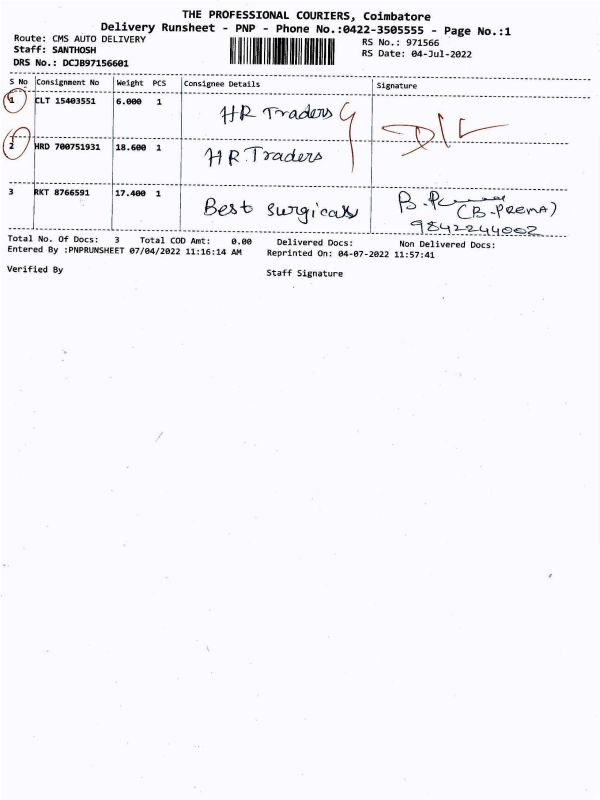 THE PROFESSIONAL COURIERS, Coimbatore
Delivery Runsheet - PNP - Phone No.:0422-3505555 - Page No.:1
Route: CMS AUTO DELIVERY RS No.: 971566
Staff: SANTHOSH RS Date: 04-Jul-2022
DRS No.: DCJB97156601
S No Consignment No Weight PCS Consignee Details Signature
1 CLT 15403551 6.000 1 HR Traders
2 HRD 700751931 18.600 1 HR.Traders
3 RKT 8766591 17.400 1 Best Surgicals (B.PREMA)
9842244002
Total No. Of Docs: 3 Total COD Amt: 0.00 Delivered Docs: Non Delivered Docs:
Entered By :PNPRUNSHEET 07/04/2022 11:16:14 AM Reprinted On: 04-07-2022 11:57:41
Verified By Staff Signature